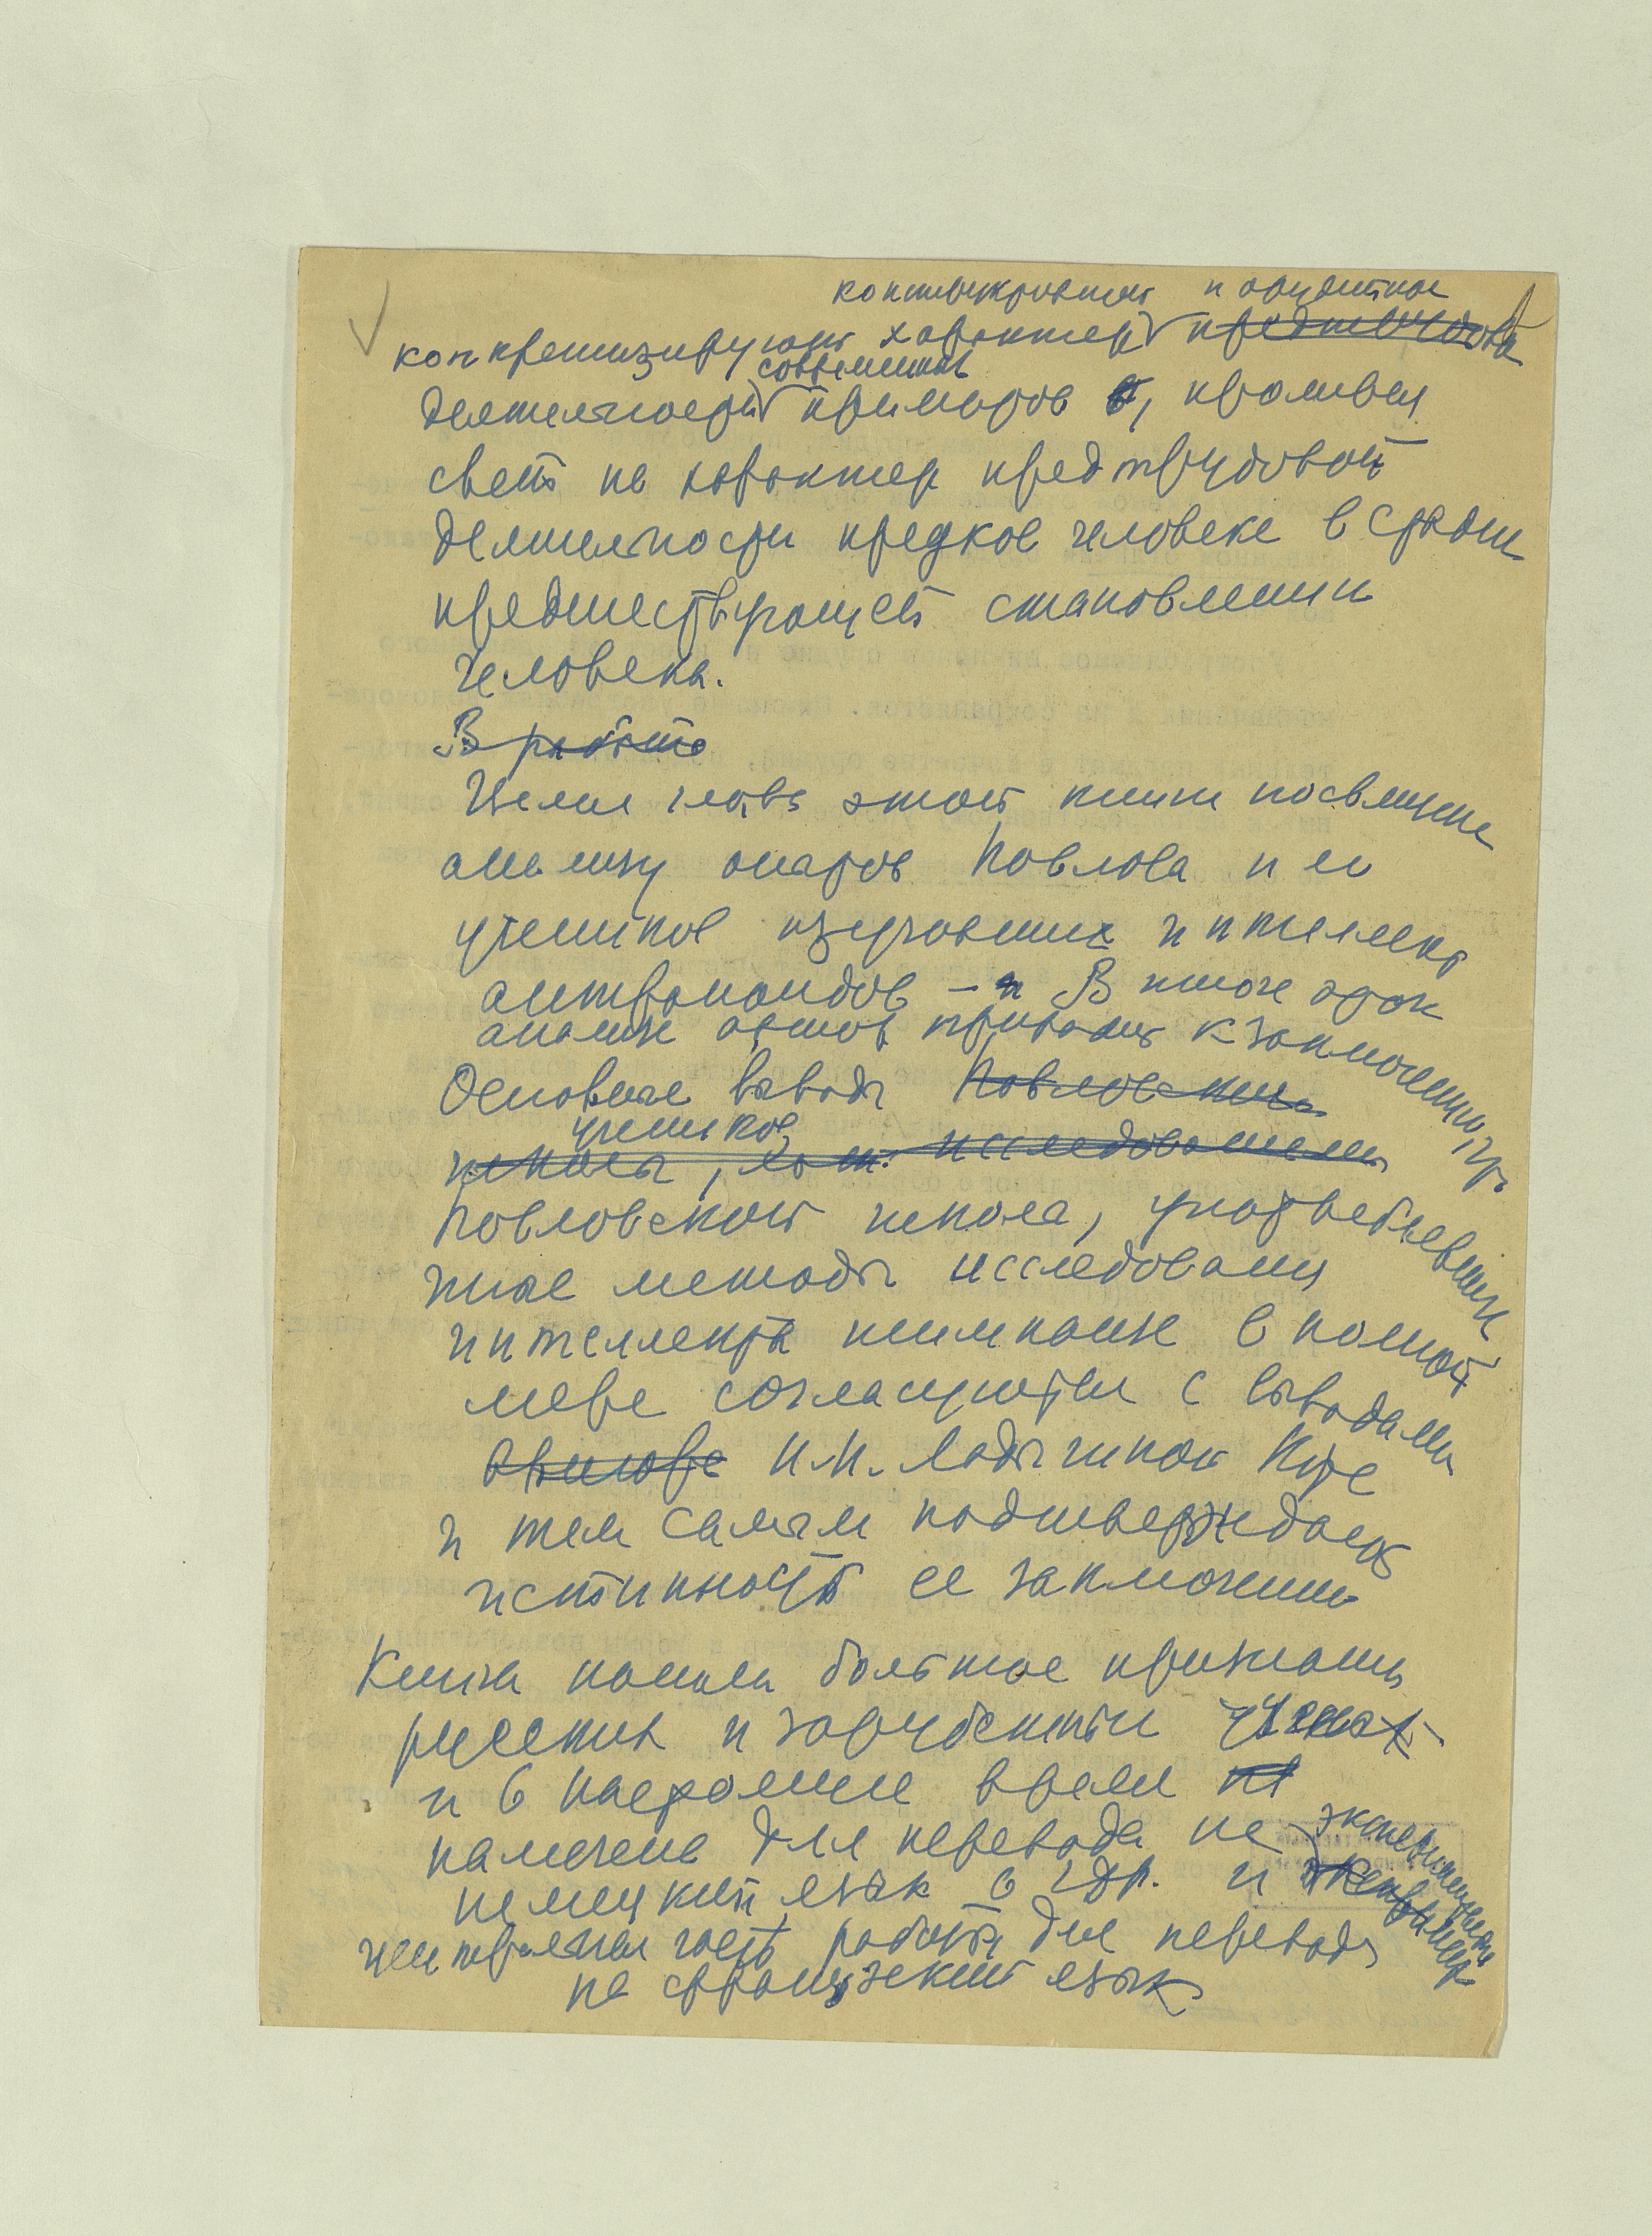 конструктивной и орудийной
конкретизируют характер предтрудовой
современных
деятельности приматов в, проливая
свет на характер предтрудовой
деятельности предков человека в стадии
предшествующей становлению
человека.
В работе
Целая глава этой книги посвящена
анализу опытов Павлова и его
учеников изучавших интеллект
антропоидов – и В итоге этот
анализ автор приводит к заключению, что
Основные выводы Павловских
учеников
школы, исследователей
Павловской школы, употреблявших
иные методы исследования
интеллекта шимпанзе в полной
мере согласуются с выводами
автора Н.Н. Ладыгиной Котс
и тем самым подтверждают
истинность ее заключений
Книга нашла большое признание
русских и зарубежных ученых
и в настоящее время на
намечена для перевода на
немецкий язык в ГДР. и эксперимен
экспериментальная
часть работы для перевода
на французский язык